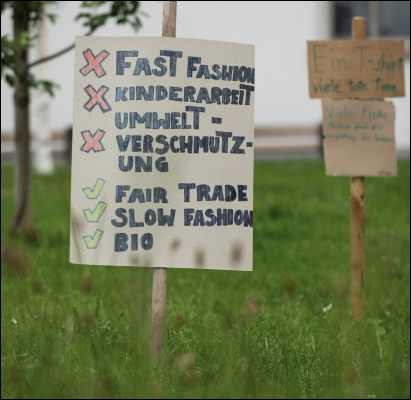 FAST FASHION
KINDERARBEIT
UMWELT -
VERSCHMUTZ-
UNG
FAIR TRADE
SLOW FASHION
BIO
Ein T-shirt
viele tote Tiere
Viele